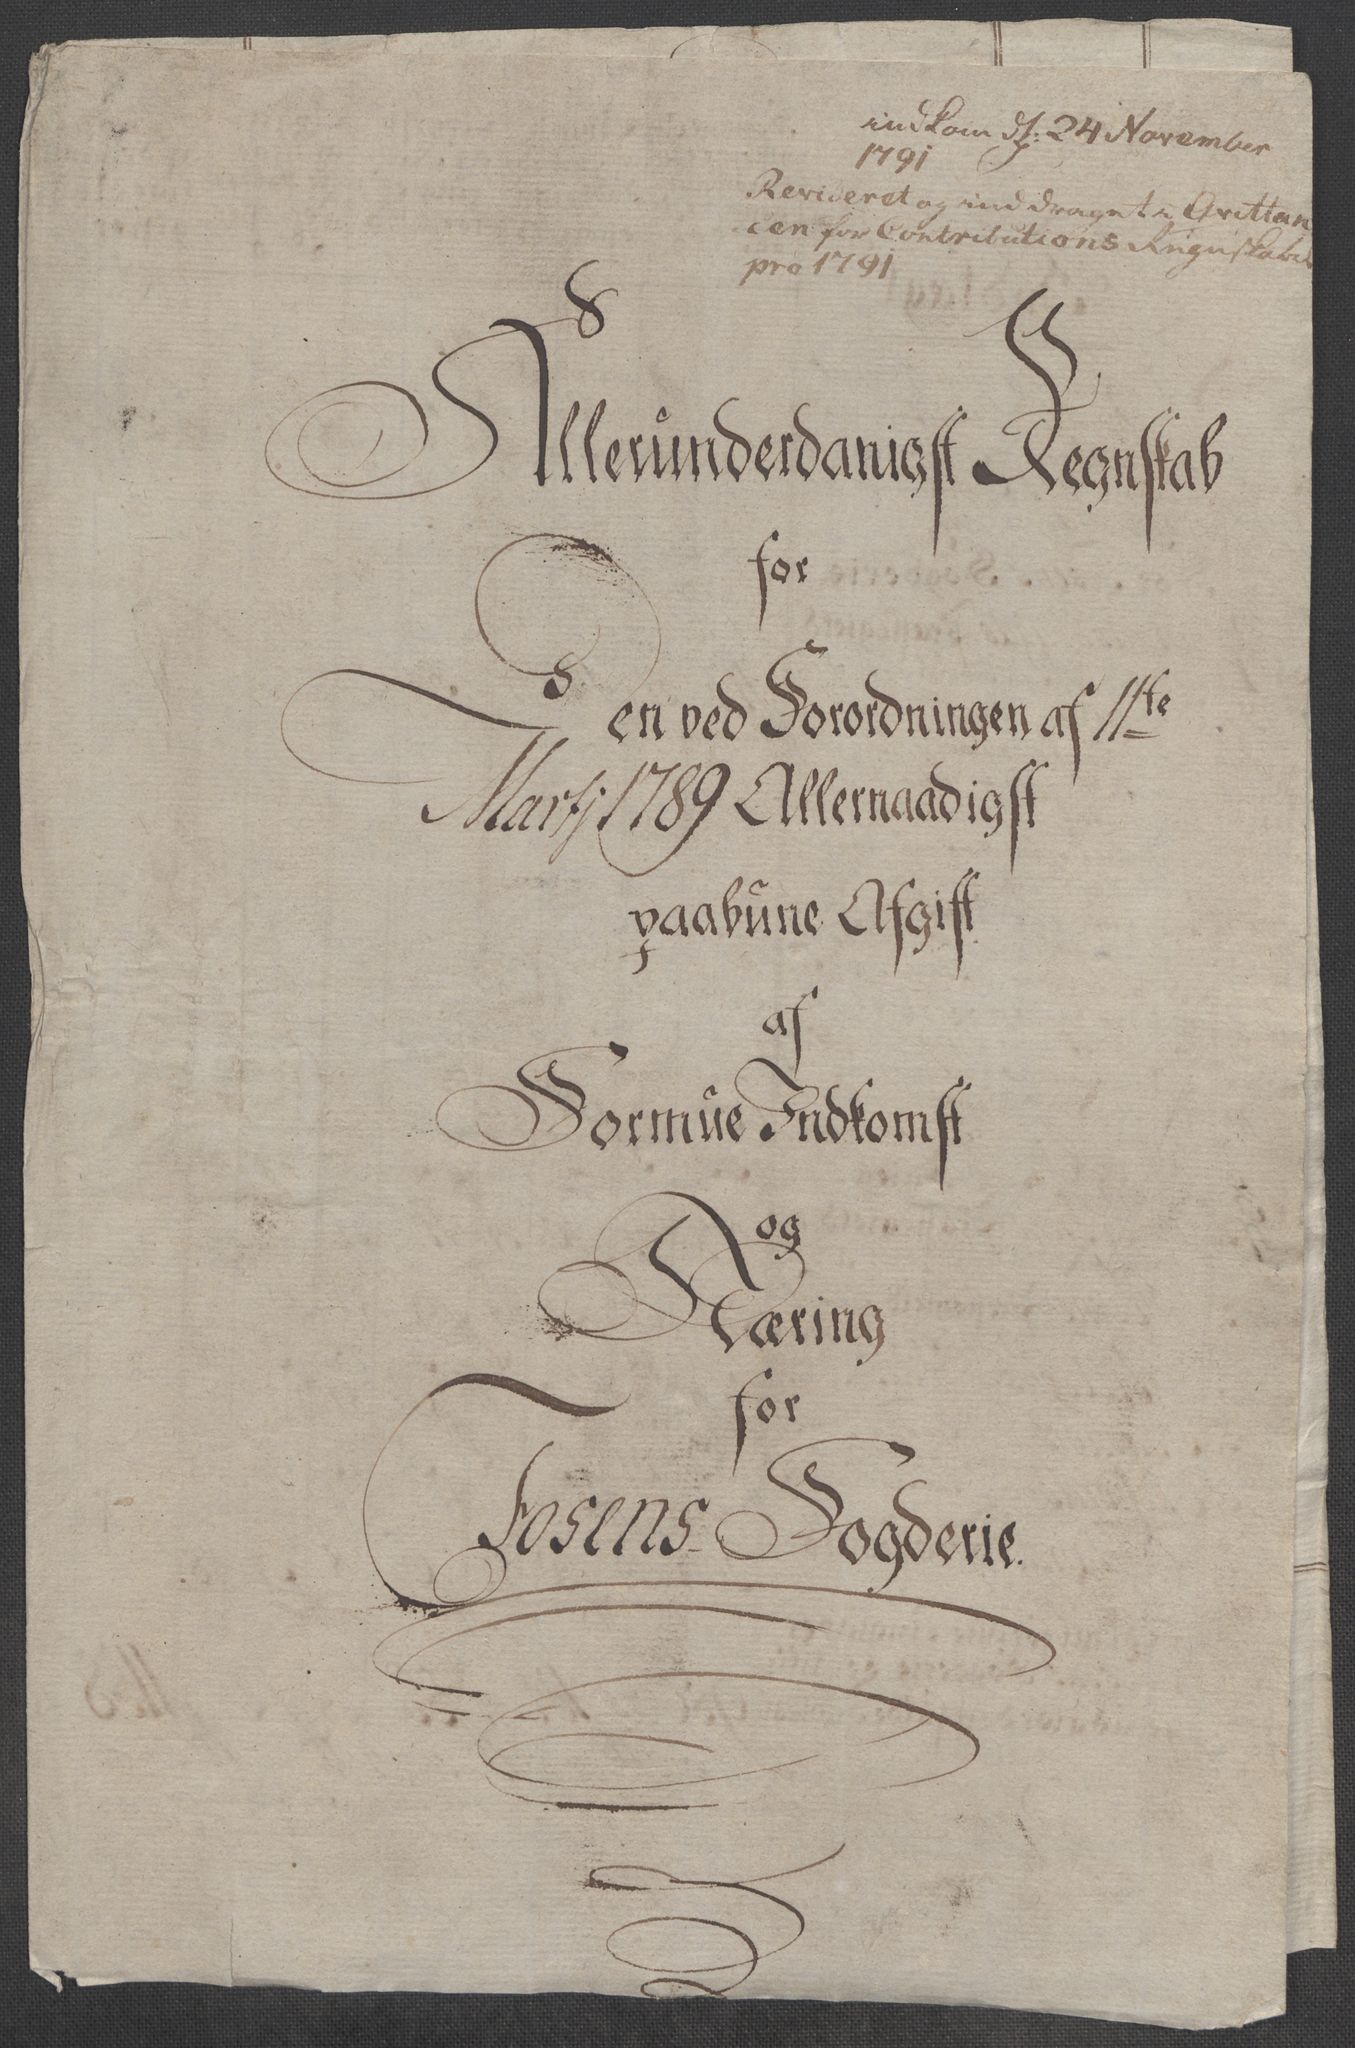 indkom d: 24 November
1791
Revideret og inddraget i Qvittan
cen for Contributions Regnskabet
pro 1791
Allerunderdanigst Regnskab
for
Den ved Forordningen af 11te
Martj 1789 Allernaadigst
paabune Afgift
af
Formue Indkomst
og
Næring
for
Fosens Fogderie.